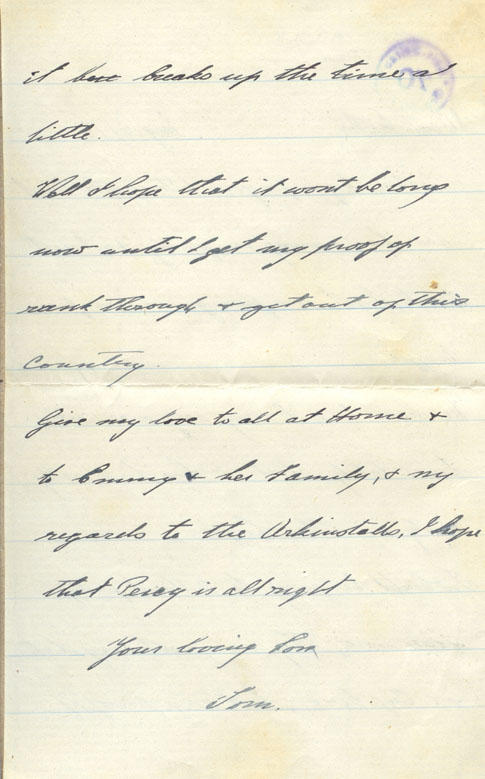 it breaks up the time a
little.
Well I hope that it wont be long
now until I get my proof of
rank through & get out of this
country.
Give my love to all at Home &
to Emmy & her Family, & my
regards to the Arkinstalls, I hope
that Percy is all right
Your loving Son
Tom.